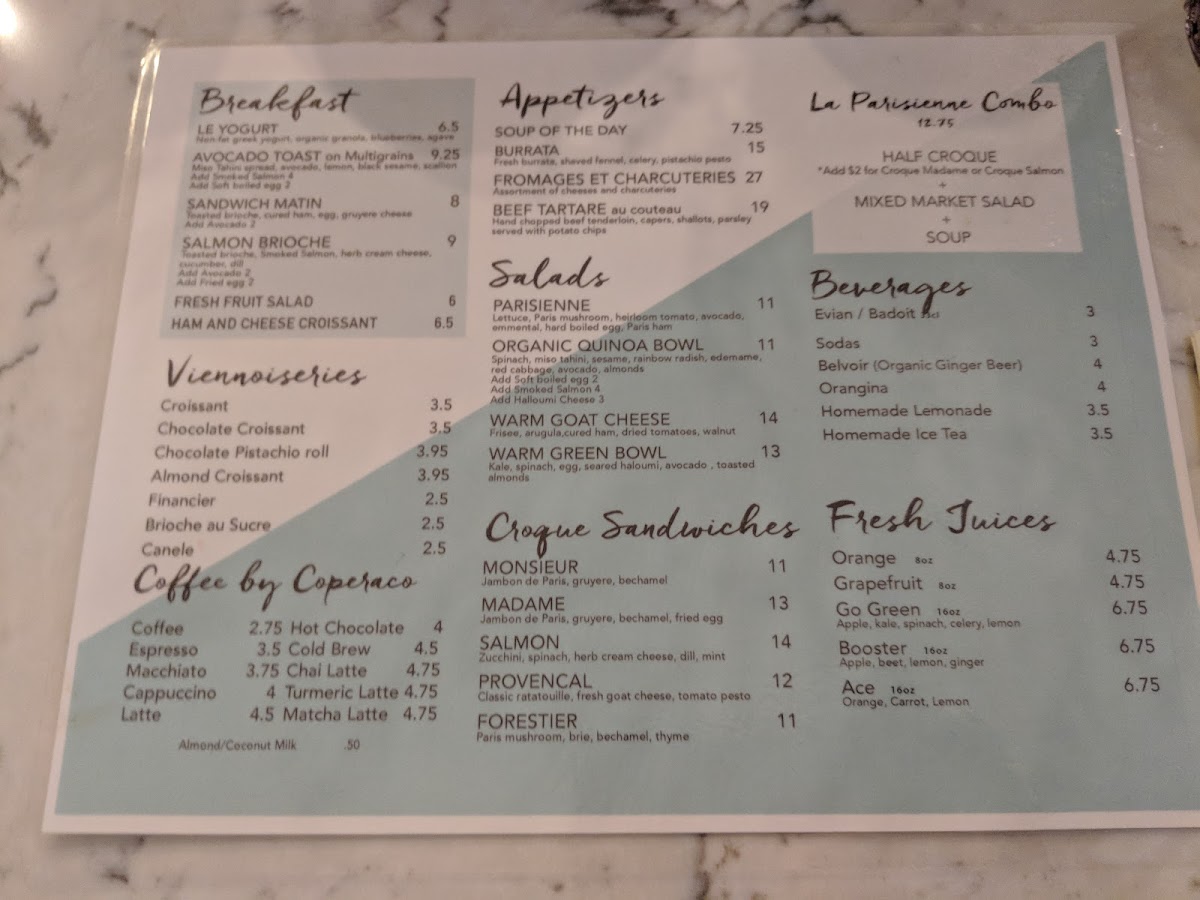 Breakfast
LE YOGURT 6.5
Non-fat greek yogurt, organic granola, blueberries, agave
AVOCADO TOAST on Multigrains 9.25
Miso Tahini spread, avocado, lemon, black sesame, scallion
Add Smoked Salmon 4
Add Soft boiled egg 2
SANDWICH MATIN 8
Toasted brioche, cured ham, egg, gruyere cheese
Add Avocado 2
SALMON BRIOCHE 9
Toasted brioche, Smoked Salmon, herb cream cheese,
cucumber, dill
Add Avocado 2
Add Fried egg 2
FRESH FRUIT SALAD 6
HAM AND CHEESE CROISSANT 6.5
Viennoiseries
Croissant 3.5
Chocolate Croissant 3.5
Chocolate Pistachio roll 3.95
Almond Croissant 3.95
Financier 2.5
Brioche au Sucre 2.5
Canele 2.5
Coffee by Coperaco
Coffee 2.75 Hot Chocolate 4
Espresso 3.5 Cold Brew 4.5
Macchiato 3.75 Chai Latte 4.75
Cappuccino 4 Turmeric Latte 4.75
Latte 4.5 Matcha Latte 4.75
Almond/Coconut Milk .50
Appetizers
SOUP OF THE DAY 7.25
BURRATA 15
Fresh burrata, shaved fennel, celery, pistachio pesto
FROMAGES ET CHARCUTERIES 27
Assortment of cheeses and charcuteries
BEEF TARTARE au couteau 19
Hand chopped beef tenderloin, capers, shallots, parsley
served with potato chips
Salads
PARISIENNE 11
Lettuce, Paris mushroom, heirloom tomato, avocado,
emmental, hard boiled egg, Paris ham
ORGANIC QUINOA BOWL 11
Spinach, miso tahini, sesame, rainbow radish, edemame,
red cabbage, avocado, almonds
Add Soft boiled egg 2
Add Smoked Salmon 4
Add Halloumi Cheese 3
WARM GOAT CHEESE 14
Frisee, arugula,cured ham, dried tomatoes, walnut
WARM GREEN BOWL 13
Kale, spinach, egg, seared haloumi, avocado , toasted
almonds
Croque Sandwiches
MONSIEUR 11
Jambon de Paris, gruyere, bechamel
MADAME 13
Jambon de Paris, gruyere, bechamel, fried egg
SALMON 14
Zucchini, spinach, herb cream cheese, dill, mint
PROVENCAL 12
Classic ratatouille, fresh goat cheese, tomato pesto
FORESTIER 11
Paris mushroom, brie, bechamel, thyme
La Parisienne Combo
12.75
HALF CROQUE
*Add $2 for Croque Madame or Croque Salmon
+
MIXED MARKET SALAD
+
SOUP
Beverages
Evian / Badoit 3
Sodas 3
Belvoir (Organic Ginger Beer) 4
Orangina 4
Homemade Lemonade 3.5
Homemade Ice Tea 3.5
Fresh Juices
Orange 8oz 4.75
Grapefruit 8oz 4.75
Go Green 16oz 6.75
Apple, kale, spinach, celery, lemon
Booster 16oz 6.75
Apple, beet, lemon, ginger
Ace 16oz 6.75
Orange, Carrot, Lemon